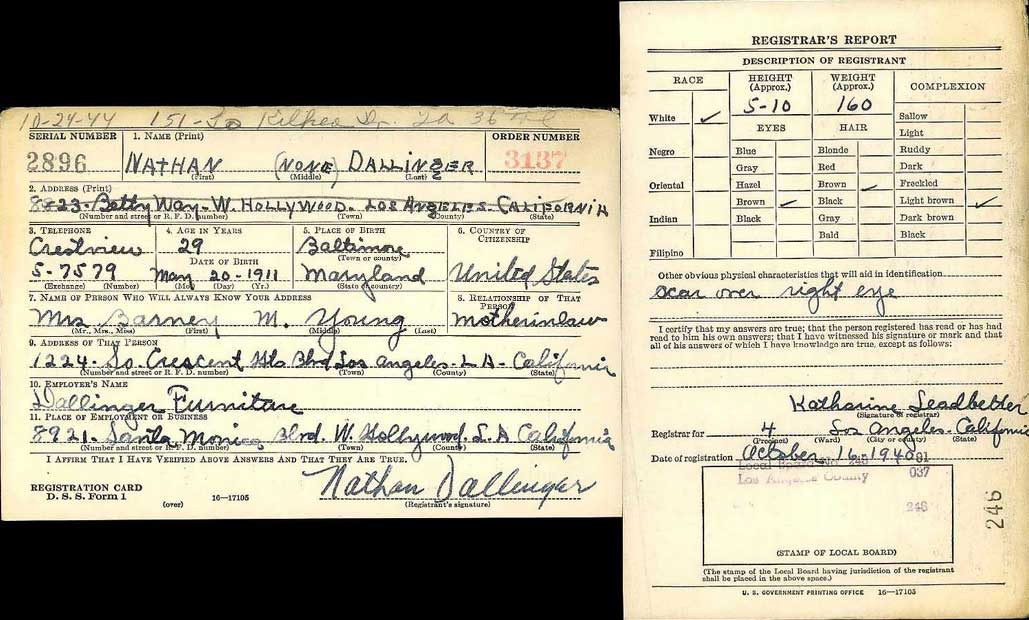 10-24-44 151-So Kilkea Dr. LA 36
SERIAL NUMBER 1. NAME (Print) ORDER NUMBER
2896 NATHAN (NONE) DALLINGER 3137
(First) (Middle) (Last)
2. ADDRESS (Print)
8823-Betty Way-W. HOLLYWOOD. LOS ANGELES. CALIFORNIA
(Number and street or R. F. D. number) (Town) (County) (State)
3. TELEPHONE 4. AGE IN YEARS 5. PLACE OF BIRTH 6. COUNTRY OF CITIZENSHIP
Crestview 29 Baltimore
DATE OF BIRTH (Town or county)
5-7579 May 20-1911 Maryland United States
(Exchange) (Number) (Mo.) (Day) (Yr.) (State or country)
7. NAME OF PERSON WHO WILL ALWAYS KNOW YOUR ADDRESS 8. RELATIONSHIP OF THAT PERSON
Mrs Barney M. Young motherinlaw
(Mr., Mrs., Miss) (First) (Middle) (Last)
9. ADDRESS OF THAT PERSON
1224-So. Crescent Hts. Blvd Los Angeles-LA-California
(Number and street or R. F. D. number) (Town) (County) (State)
10. EMPLOYER'S NAME
Dallinger Furniture
11. PLACE OF EMPLOYMENT OR BUSINESS
8921-Santa Monica Blvd. W. Hollywood. L.A. California
(Number and street or R. F. D. number) (Town) (County) (State)
I AFFIRM THAT I HAVE VERIFIED ABOVE ANSWERS AND THAT THEY ARE TRUE.
Nathan Dallinger
REGISTRATION CARD
D. S. S. Form 1 16—17105
(over) (Registrant's signature)
REGISTRAR'S REPORT
DESCRIPTION OF REGISTRANT
RACE HEIGHT (Approx.) WEIGHT (Approx.) COMPLEXION
5-10 160
White ✓ Sallow
EYES HAIR Light
Negro Blue Blonde Ruddy
Gray Red Dark
Oriental Hazel Brown ✓ Freckled
Brown ✓ Black Light brown ✓
Indian Black Gray Dark brown
Bald Black
Filipino
Other obvious physical characteristics that will aid in identification
scar over right eye
I certify that my answers are true; that the person registered has read or has had
read to him his own answers; that I have witnessed his signature or mark and that
all of his answers of which I have knowledge are true, except as follows:
Katharine Leadbetter
(Signature of registrar)
Registrar for 4 Los Angeles-California
(Precinct) (Ward) (City or county) (State)
Date of registration October 16-1940
Local Board No. 246 91
Los Angeles County 037
246
246
(STAMP OF LOCAL BOARD)
(The stamp of the Local Board having jurisdiction of the registrant
shall be placed in the above space.)
U. S. GOVERNMENT PRINTING OFFICE 16—17105